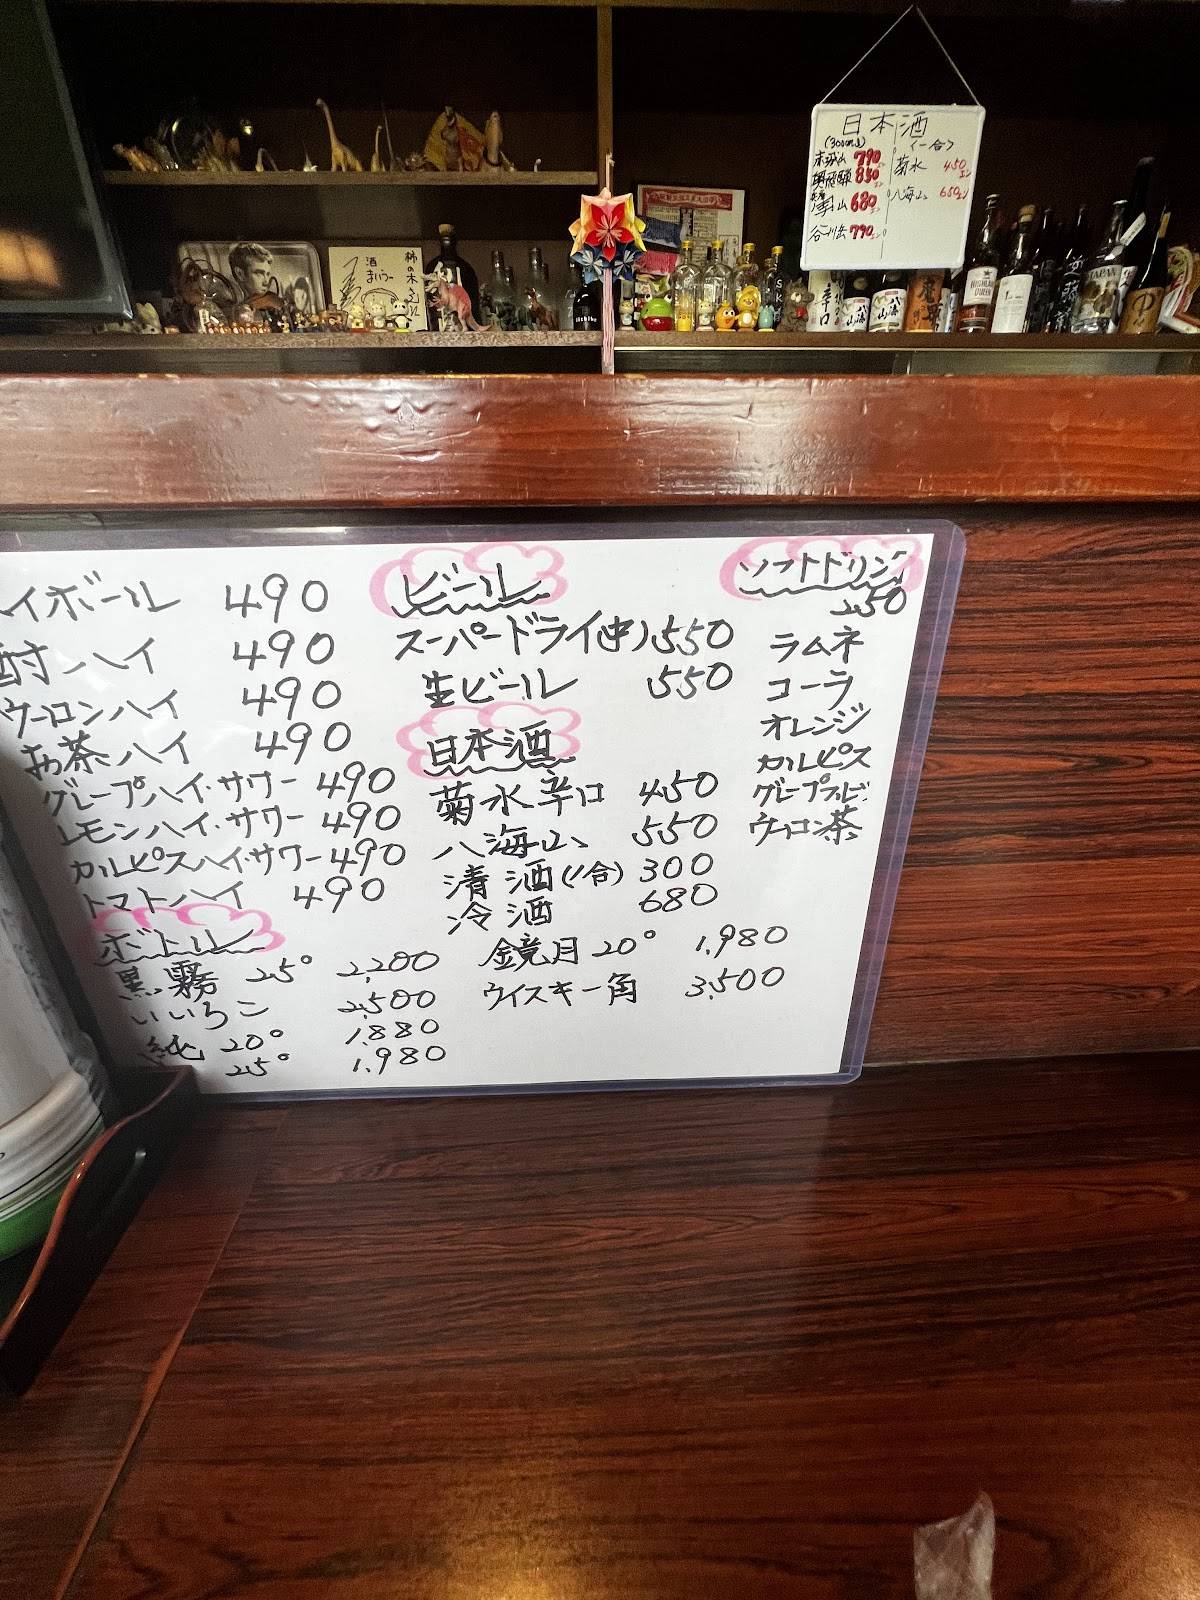 日本酒
(300ml) (一合)
790 菊水 450エン
奥飛騨 850エン 八海山 650エン
680エン
谷川岳 790エン
酒
まいう〜
柿の木さん江
iichiko
辛口
八海山
八海山
HIGHLAND QUEEN
イボール 490
酎ハイ 490
ウーロンハイ 490
お茶ハイ 490
グレープハイ・サワー 490
レモンハイ・サワー 490
カルピスハイ・サワー 490
トマトハイ 490
ボトル
黒霧 25° 2,200
いいちこ 2,500
純 20° 1,880
25° 1,980
ビール
スーパードライ(中) 550
生ビール 550
日本酒
菊水辛口 450
八海山 550
清酒(1合) 300
冷酒 680
金鏡月20° 1,980
ウイスキー角 3,500
ソフトドリンク
250
ラムネ
コーラ
オレンジ
カルピス
グレープフルーツ
ウーロン茶